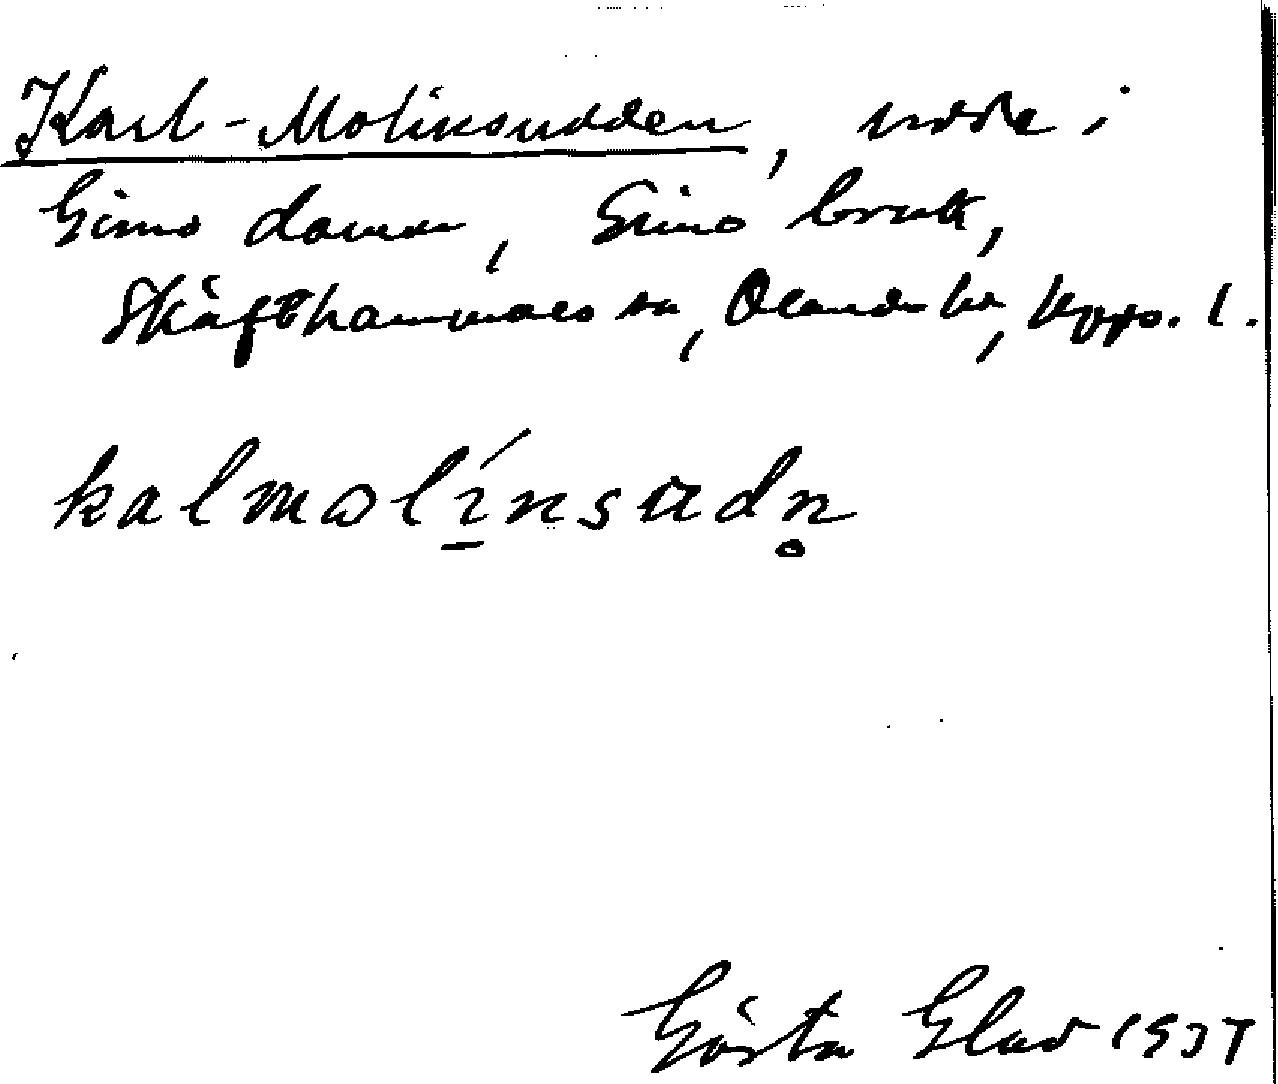 Karl-Molinsudden, udde i
Gimo damm, Gimo bruk,
Skäfthammars sn, Olands hd, Upps. l.
kalmolínsudn̥
Gösta Glad 1937